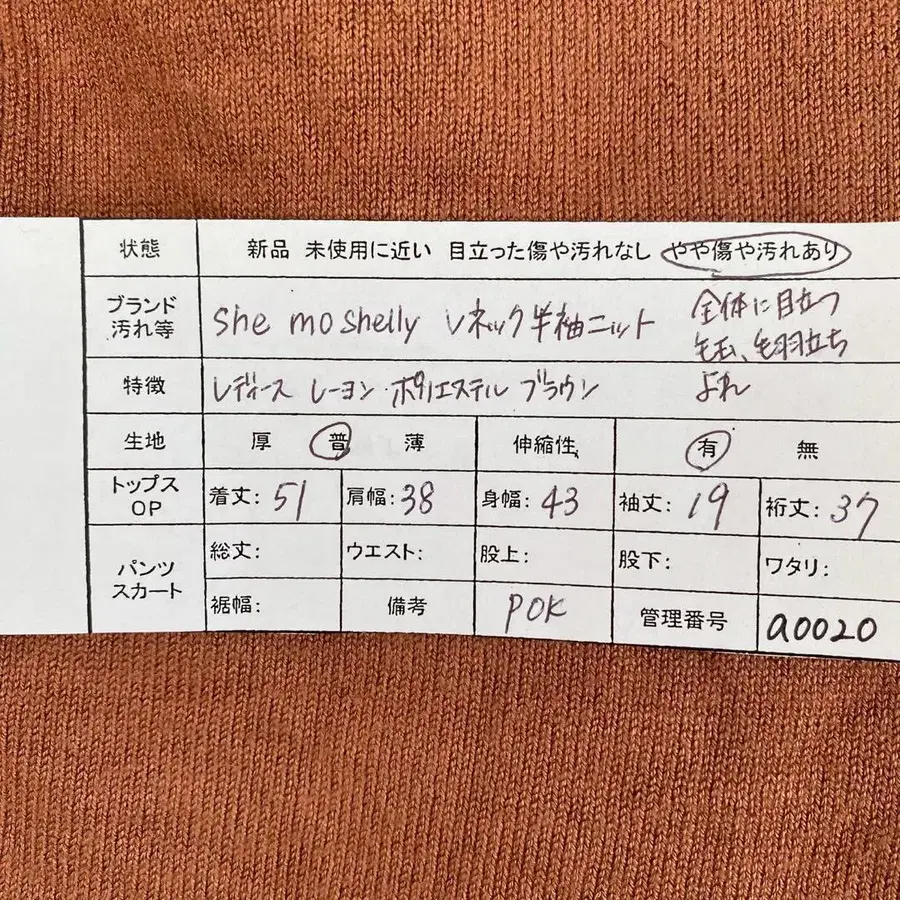 状態 新品 未使用に近い 目立った傷や汚れなし やや傷や汚れあり
ブランド
汚れ等
she mo shelly Vネック半袖ニット
全体に目立つ
毛玉、毛羽立ち
よれ
特徴 レディース レーヨン・ポリエステル ブラウン
生地 厚 普 薄 伸縮性 有 無
トップス
OP
着丈: 51 肩幅: 38 身幅: 43 袖丈: 19 裄丈: 37
パンツ
スカート
総丈: ウエスト: 股上: 股下: ワタリ:
裾幅: 備考 POK 管理番号 a0020